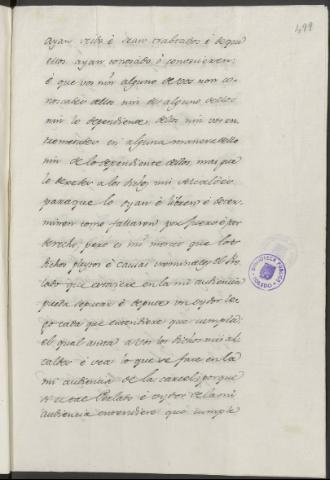 499
ayan seido é sean trabados é de qui
ellos ayan conosido é convenieren:
é que vos nin alguno de vos non co-
noscades dellos nin de alguno dellos
nin lo dependiente dellos nin vos en-
tremetades en alguna manera dello
nin de lo dependiente dellos, mas que
lo dexedes a los dichos mis Alcaldes
para que lo oyan é libren é deter-
minen como fallaren por fuero é por
derecho, pero es mi merced que los
dichos pleytos é causas criminales, el Pre-
lado que estoviere en la mi audiencia
pueda deputar é depute un oydor le-
go cada que entendiere que cumpla:
el qual junto a vos los dichos mis al-
caldes é vea lo que se face en la
mi audiencia de la carcel: porque
si el tal Perlado é oydores de la mi
audiencia entendiere que cumple
BIBLIOTECA PUBLICA
TOLEDO